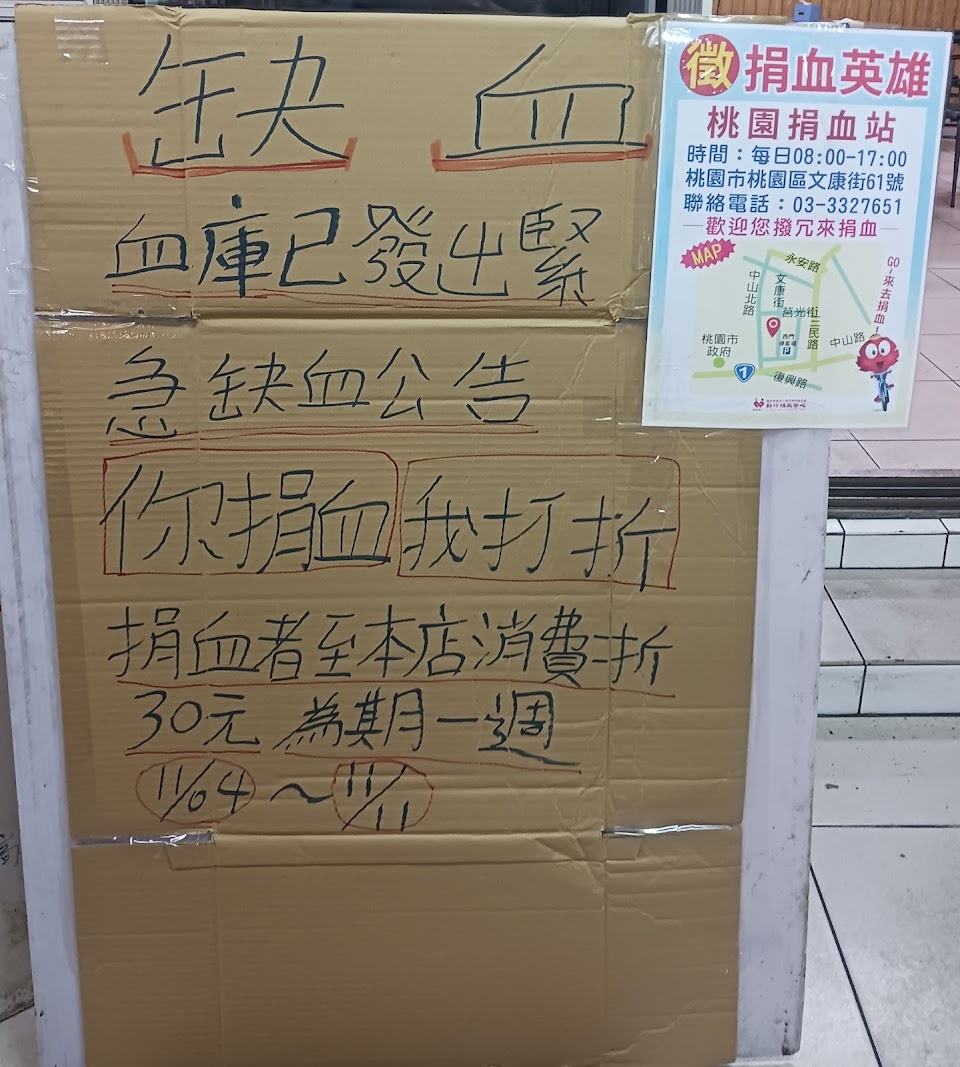 缺 血
血庫已發出緊
急缺血公告
你捐血 我打折
捐血者至本店消費折
30元 為期一週
11/04～11/11
徵 捐血英雄
桃園捐血站
時間：每日08:00-17:00
桃園市桃園區文康街61號
聯絡電話：03-3327651
歡迎您撥冗來捐血
MAP
永安路
中山北路
文康街
莒光街
三民路
中山路
西門
停車場
P
桃園市
政府
1
復興路
GO~來去捐血！
新竹捐血中心